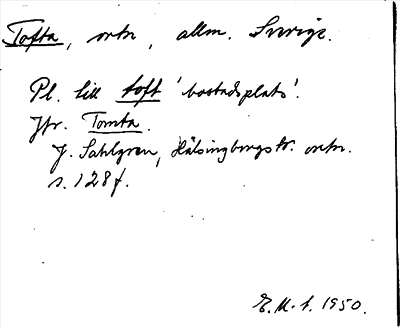 Tofta, ortn, allm. Sverige.
Pl. till toft 'bostadsplats'.
Jfr. Tomta.
J. Sahlgren, Hälsingborgstr. ortn.
s. 128 f.
E.M.t. 1950.